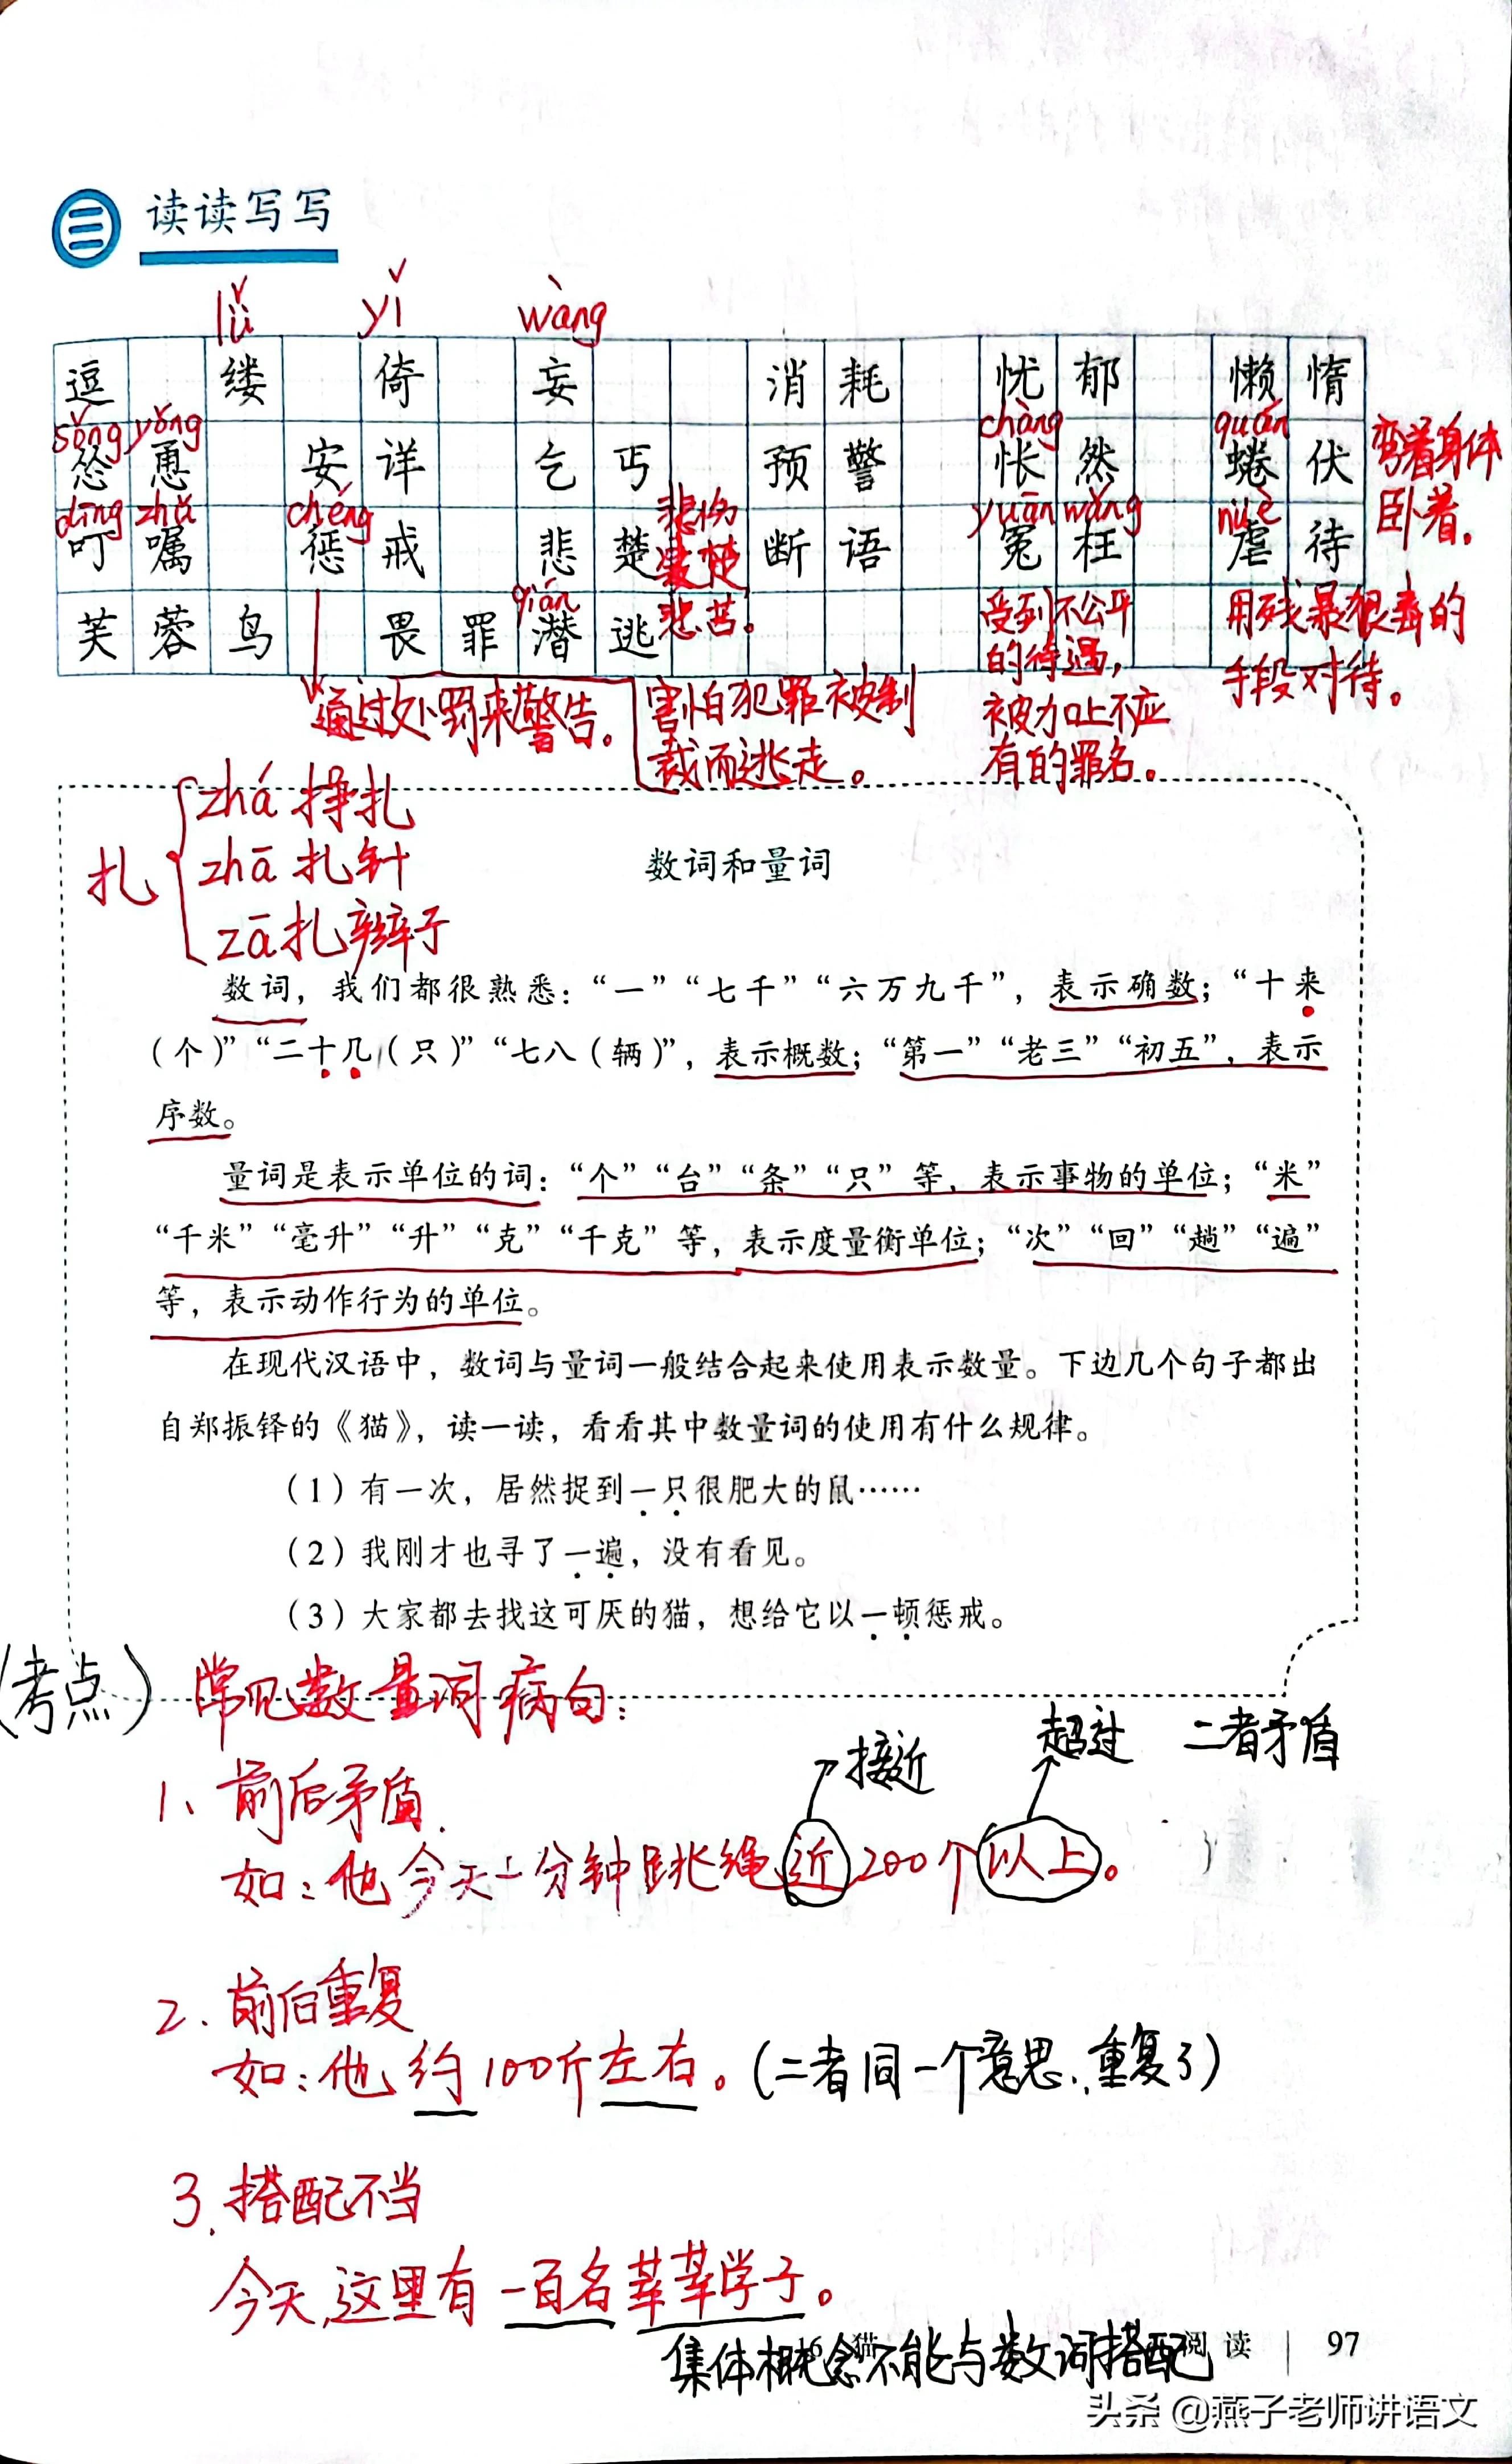 三 读读写写
lǚ yǐ wàng
逗 缕 倚 妄 消耗 忧郁 懒惰
sǒng yǒng chàng quán
怂恿 安详 乞丐 预警 怅然 蜷伏 弯着身体
卧着。
dīng zhǔ chéng 悲伤 yuān wǎng nüè
叮嘱 惩戒 悲楚 凄楚 断语 冤枉 虐待
qián 悲苦。
芙蓉鸟 畏罪潜逃
受到不公平
的待遇,
被加上不应
有的罪名。
用残暴狠毒的
手段对待。
通过处罚来警告。
害怕犯罪被制
裁而逃走。
扎 zhá 挣扎
zhā 扎针
zā 扎辫子
数词和量词
数词，我们都很熟悉：“一”“七千”“六万九千”，表示确数；“十来
（个）”“二十几（只）”“七八（辆）”，表示概数；“第一”“老三”“初五”，表示
序数。
量词是表示单位的词：“个”“台”“条”“只”等，表示事物的单位；“米”
“千米”“毫升”“升”“克”“千克”等，表示度量衡单位；“次”“回”“趟”“遍”
等，表示动作行为的单位。
在现代汉语中，数词与量词一般结合起来使用表示数量。下边几个句子都出
自郑振铎的《猫》，读一读，看看其中数量词的使用有什么规律。
（1）有一次，居然捉到一只很肥大的鼠……
（2）我刚才也寻了一遍，没有看见。
（3）大家都去找这可厌的猫，想给它以一顿惩戒。
（考点）常见数量词病句：
接近 超过 二者矛盾
1、前后矛盾.
如：他今天一分钟跳绳近200个以上。
2.前后重复
如：他约100斤左右。（二者同一个意思、重复了）
3.搭配不当
今天,这里有一百名莘莘学子。
16 猫 阅读 | 97
集体概念不能与数词搭配
头条 @燕子老师讲语文